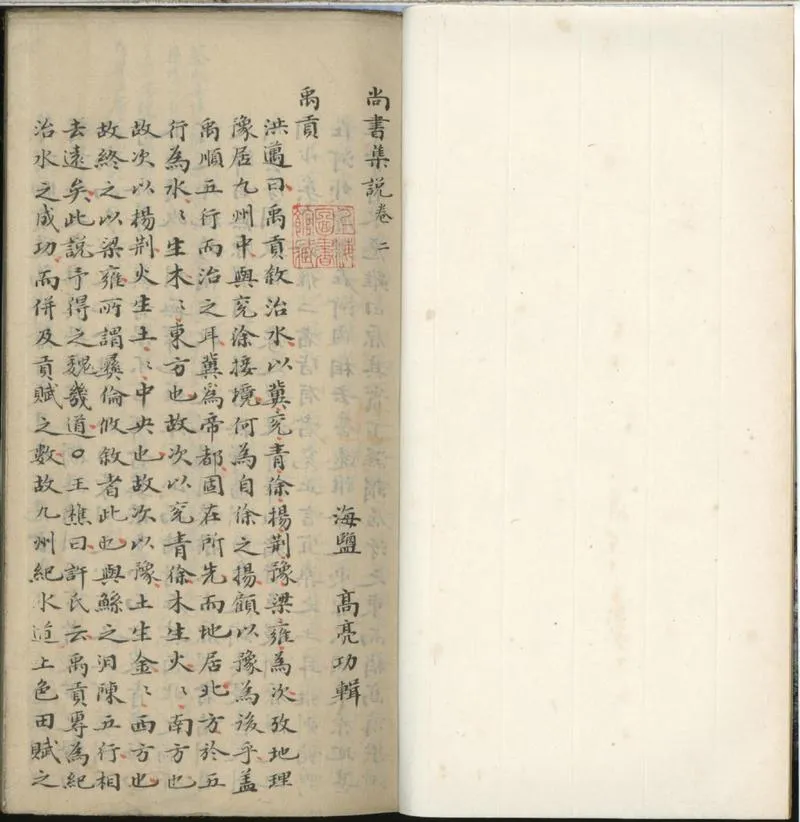 尚書集說卷二
海鹽 高亮功輯
禹貢
洪邁曰禹貢敘治水以冀兗青徐揚荆豫梁雍為次攷地理
豫居九州中與兗徐接境何為自徐之揚顧以豫為後乎蓋
禹順五行而治之耳冀為帝都固在所先而地居北方於五
行為水〻生木〻東方也故次以兗青徐木生火〻南方也
故次以揚荆火生土〻中央也故次以豫土生金〻西方也
故終之以梁雍所謂彝倫攸敘者此也與鯀之汩陳五行相
去遠矣此說予得之魏幾道○王樵曰許氏云禹貢專為紀
治水之成功而併及貢賦之數故九州紀水道土色田賦之
圖書